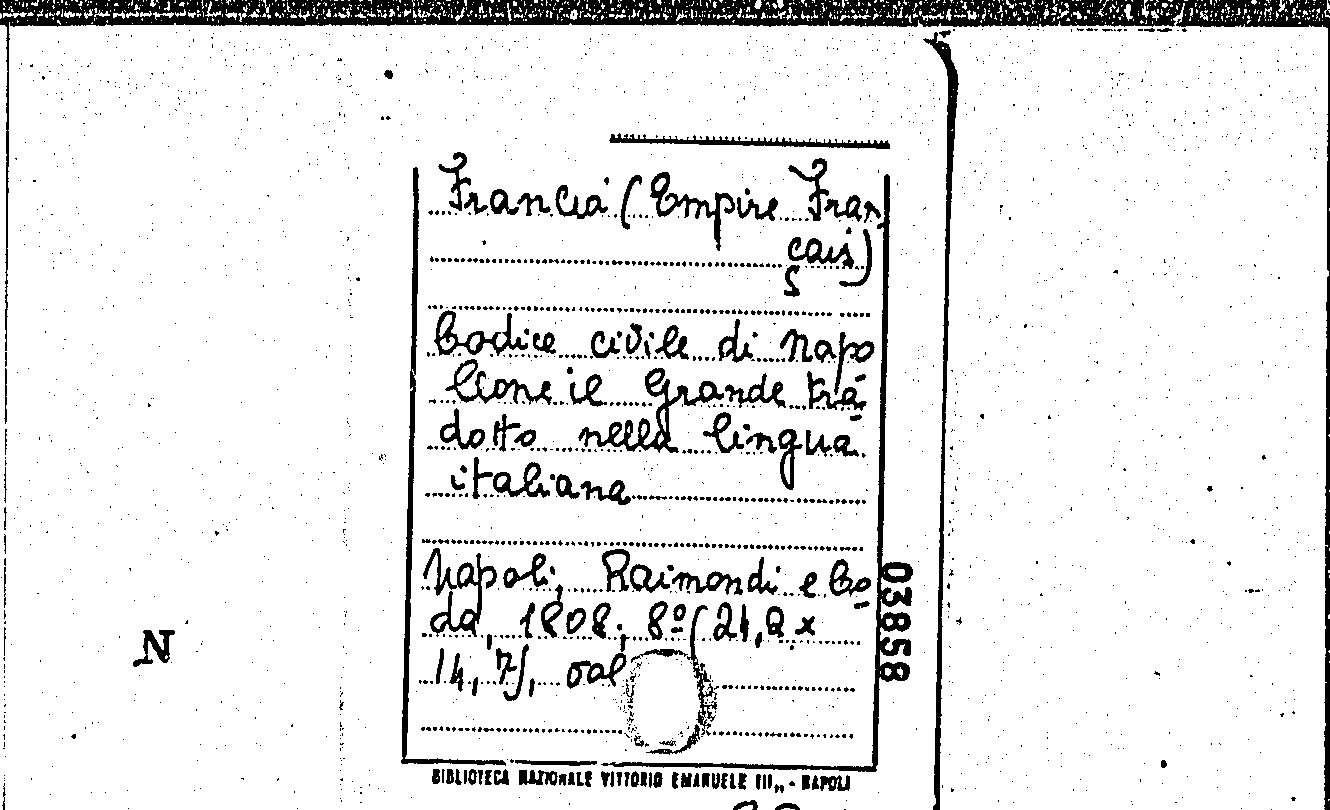 Francia (Empire Fran
çais)
Codice civile di Napo
leone il Grande tra-
dotto nella lingua
italiana
Napoli, Raimondi e Co-
da, 1808; 8º (21,2 x
14,7), vol
03858
N
BIBLIOTECA NAZIONALE VITTORIO EMANUELE III,, - NAPOLI